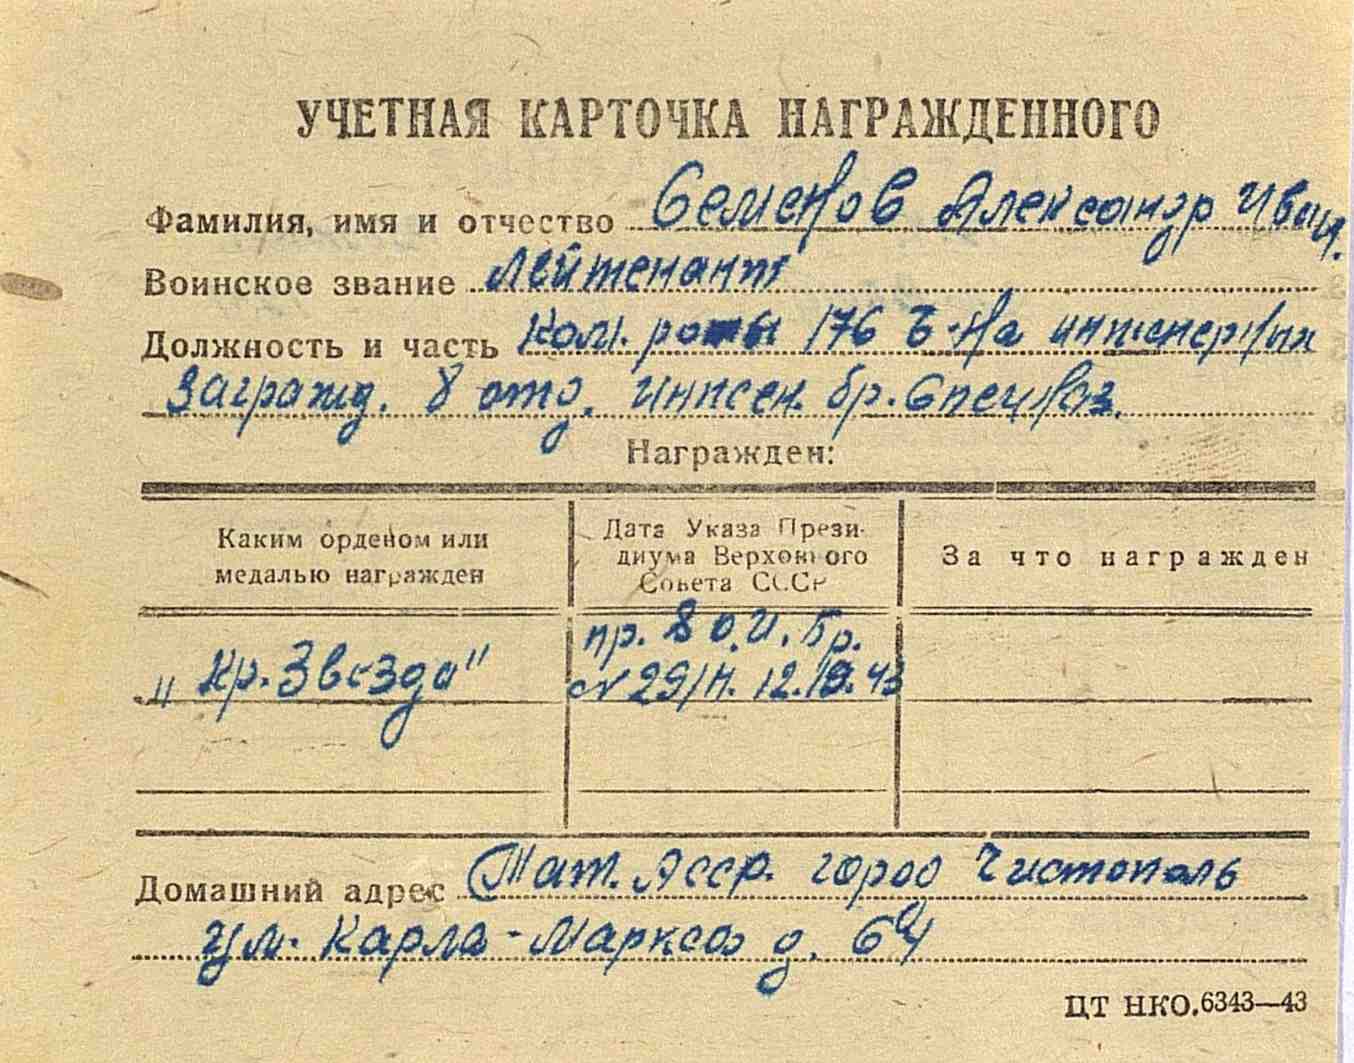 УЧЕТНАЯ КАРТОЧКА НАГРАЖДЕННОГО
Фамилия, имя и отчество Семенов Александр Иван.
Воинское звание Лейтенант
Должность и часть Ком. роты 176 б-на инженерных
Загражд. 8 отд. инжен. бр. Спецназ.
Награжден:
Каким орденом или медалью награжден
Дата Указа Президиума Верховного Совета СССР
За что награжден
"Кр. Звезда"
пр. 8 О.И.Бр.
№ 29/н. 12. 43
Домашний адрес Тат. Асср. город Чистополь
ул. Карла-Маркса д. 64
ЦТ НКО.6343—43